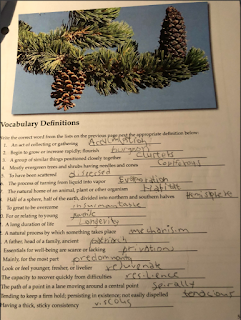 Vocabulary Definitions
Write the correct word from the lists on the previous page next the appropriate definition below:
1. An act of collecting or gathering Accumulation
2. Begin to grow or increase rapidly; flourish burgeon
3. A group of similar things positioned closely together clusters
4. Mostly evergreen trees and shrubs having needles and cones
5. To have been scattered dispersed
The process of turning liquid into vapor
The natural home of an animal, plant or other organism habitat
Half of a sphere, half of the earth, divided into northern and southern halves
Too great to be overcome
For or relating to young
A long duration of life longevity
A natural process by which something takes place mechanism
A father, head of a family, ancient
Essentials for well-being are scarce or lacking privations
Mainly, for the most part
Look or feel younger, fresher, or livelier rejuvenate
The capacity to recover quickly from difficulties resilience
The path of a point in a lane moving around a central point spirally
Tending to keep a firm hold; persisting in existence; not easily dispelled
Having a thick, sticky consistency